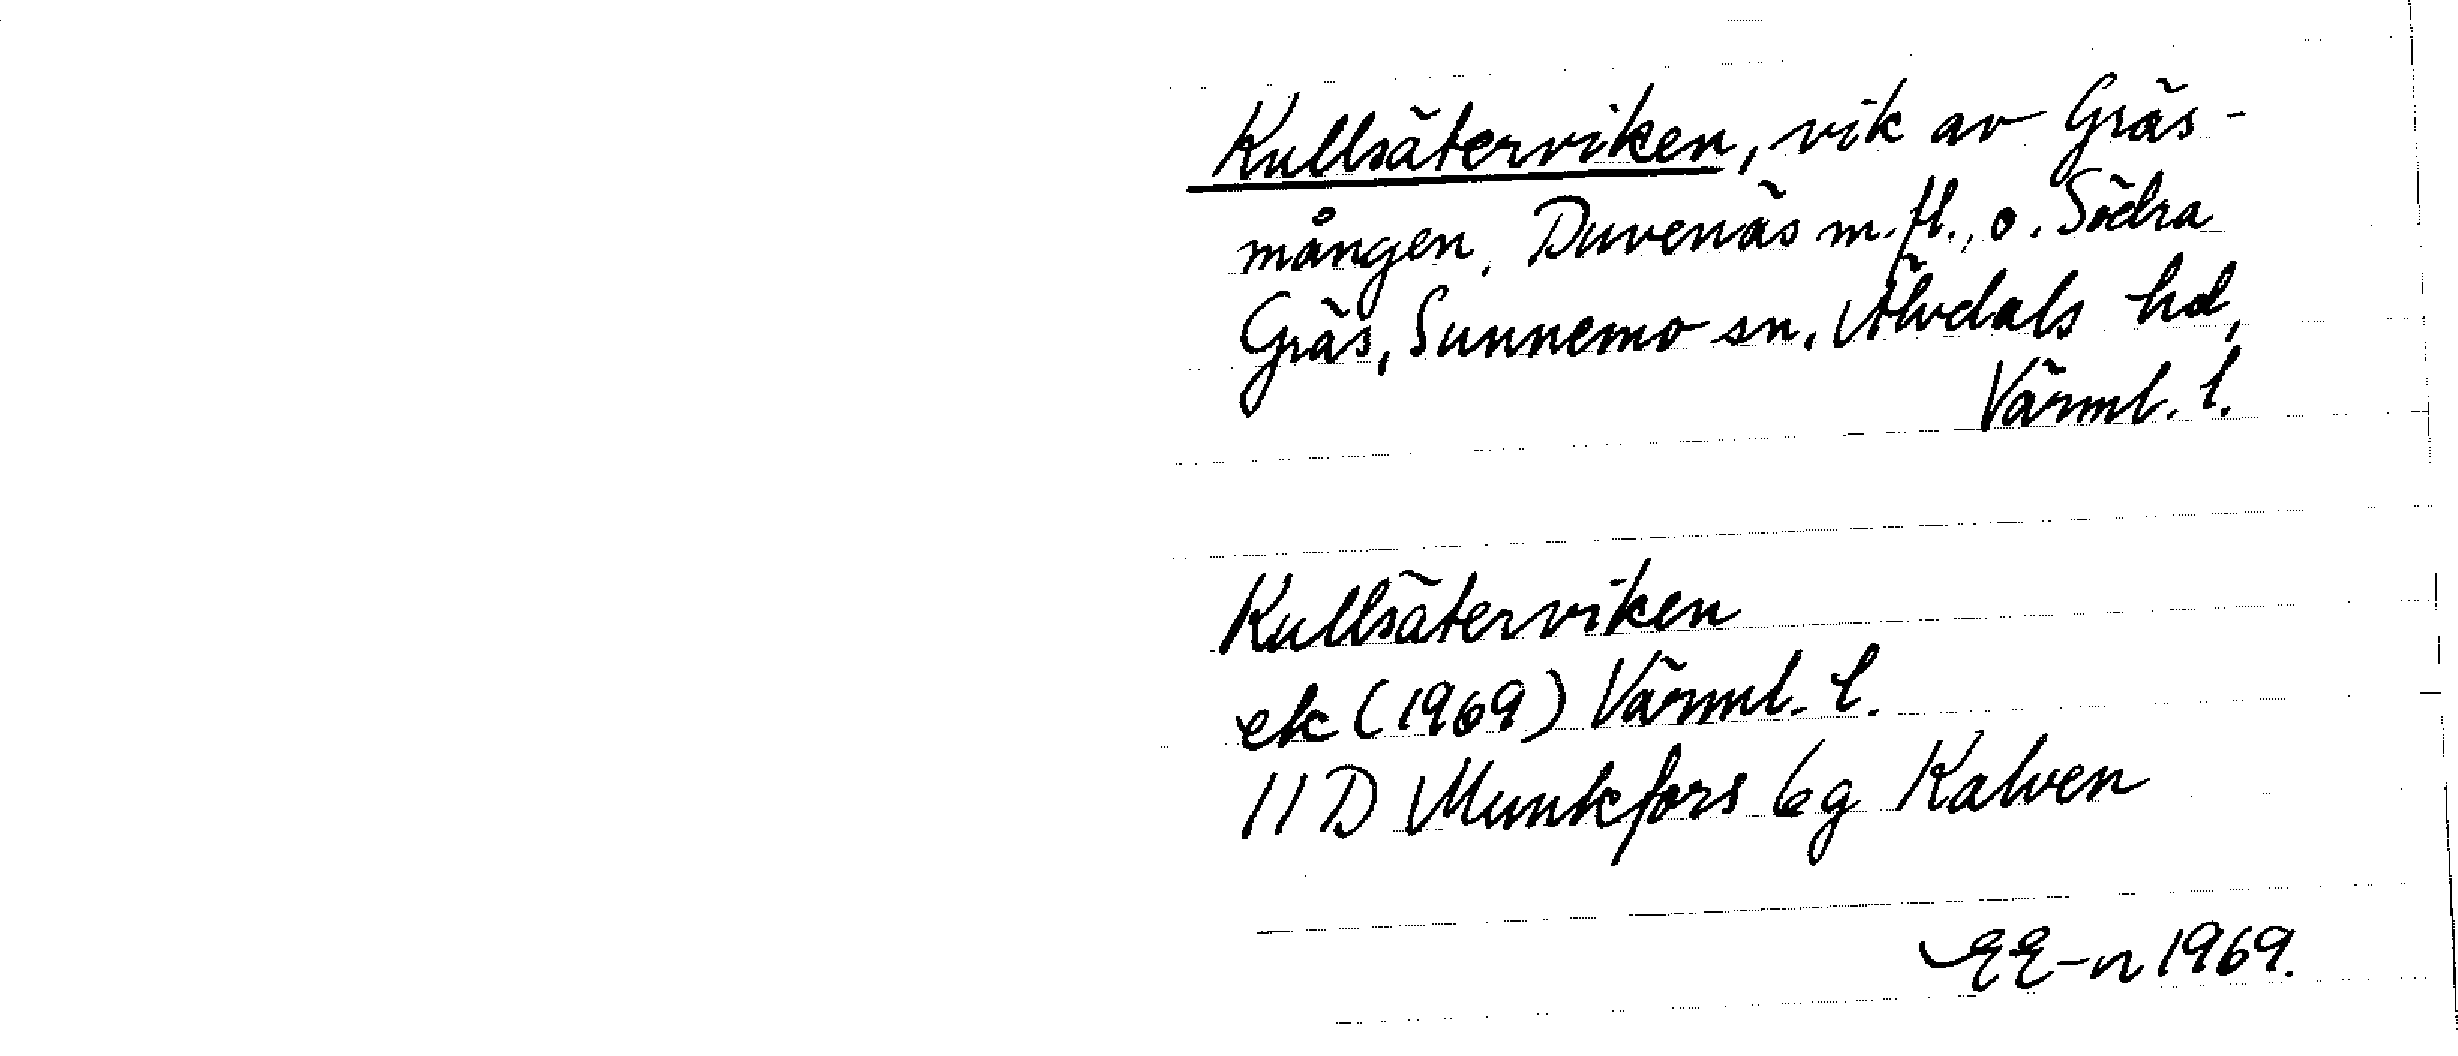 Kullsäterviken, vik av Gräs-
mången, Duvenäs m.fl., o. Södra
Gräs, Sunnemo sn, Älvdals hd,
Värml. l.
Kullsäterviken
ek (1969) Värml. l.
11D Munkfors 6g Kalven
EE-n 1969.